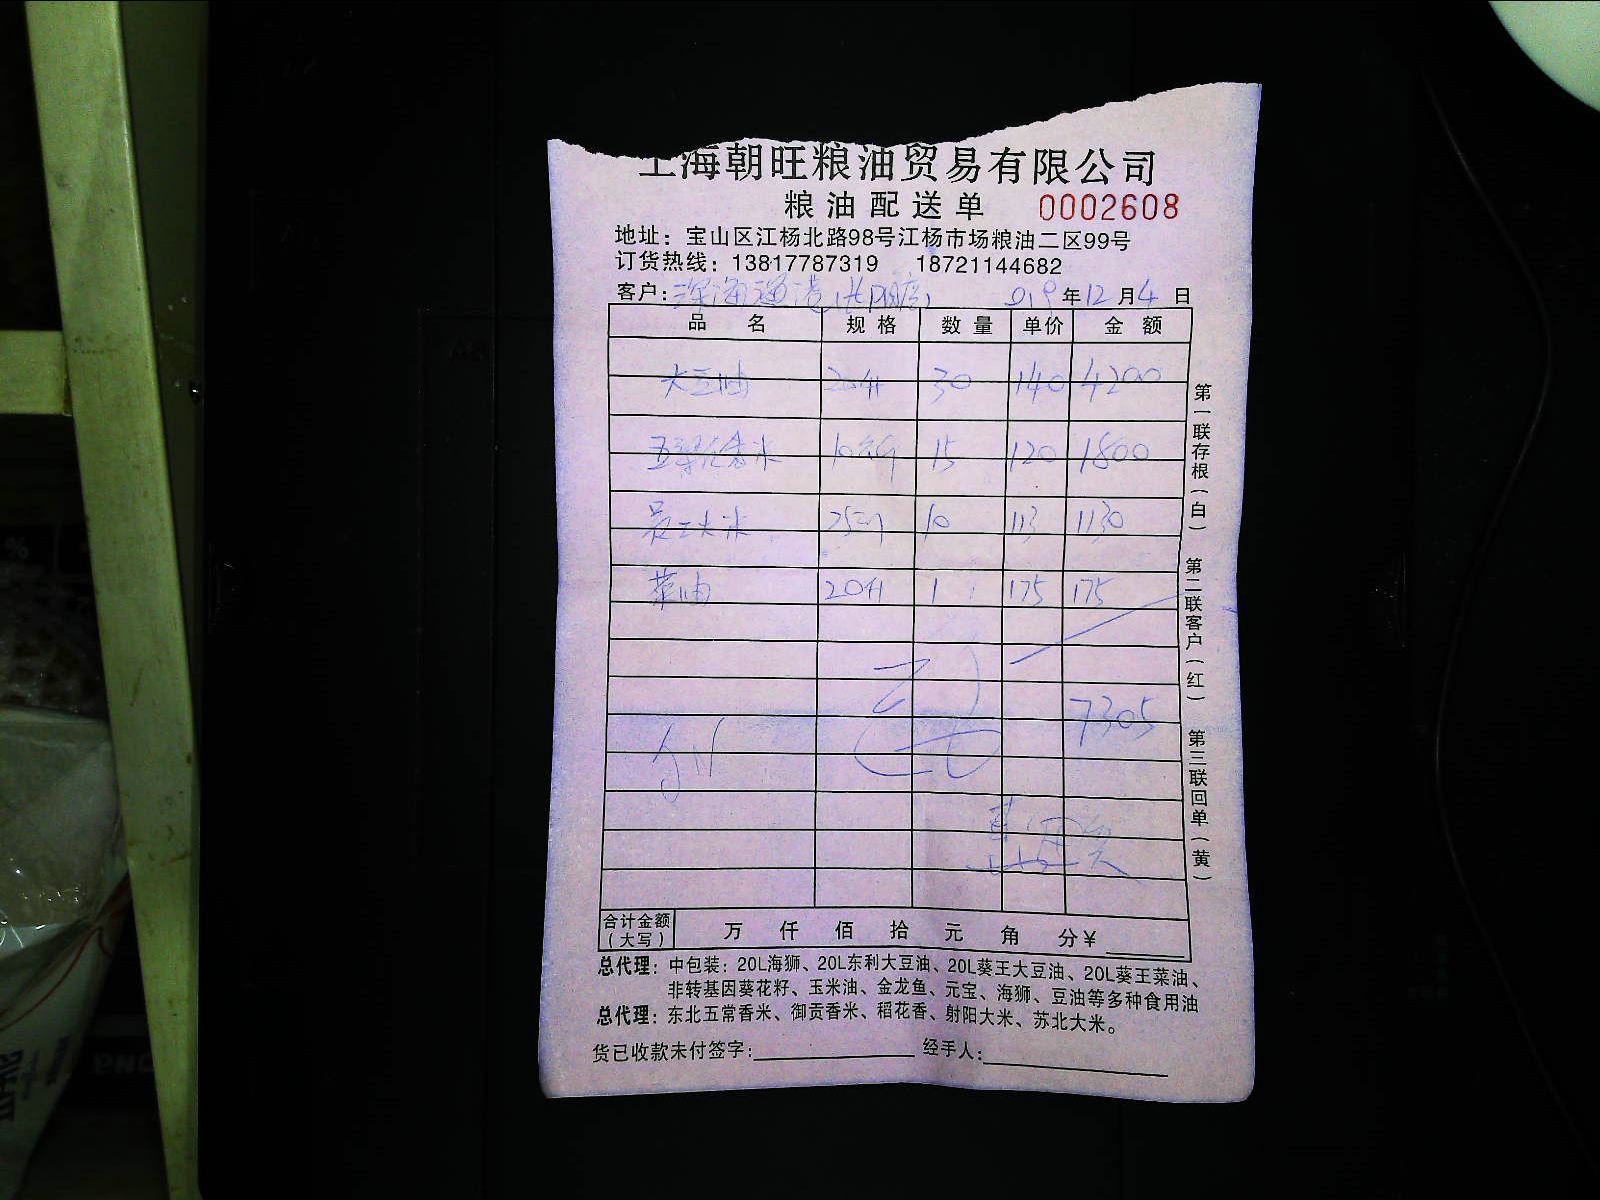 上海朝旺粮油贸易有限公司
粮油配送单 0002608
地址：宝山区江杨北路98号江杨市场粮油二区99号
订货热线：13817787319 18721144682
客户： 019年12月4日
品名 规格 数量 单价 金额
大豆油 20升 30 140 4200
15 120 1800
大米 10 113 1130
菜油 20升 1 175 175
7305
合计金额（大写） 万 仟 佰 拾 元 角 分￥
总代理：中包装：20L海狮、20L东利大豆油、20L葵王大豆油、20L葵王菜油、
非转基因葵花籽、玉米油、金龙鱼、元宝、海狮、豆油等多种食用油
总代理：东北五常香米、御贡香米、稻花香、射阳大米、苏北大米。
货已收款未付签字： 经手人：
第一联存根（白）
第二联客户（红）
第三联回单（黄）